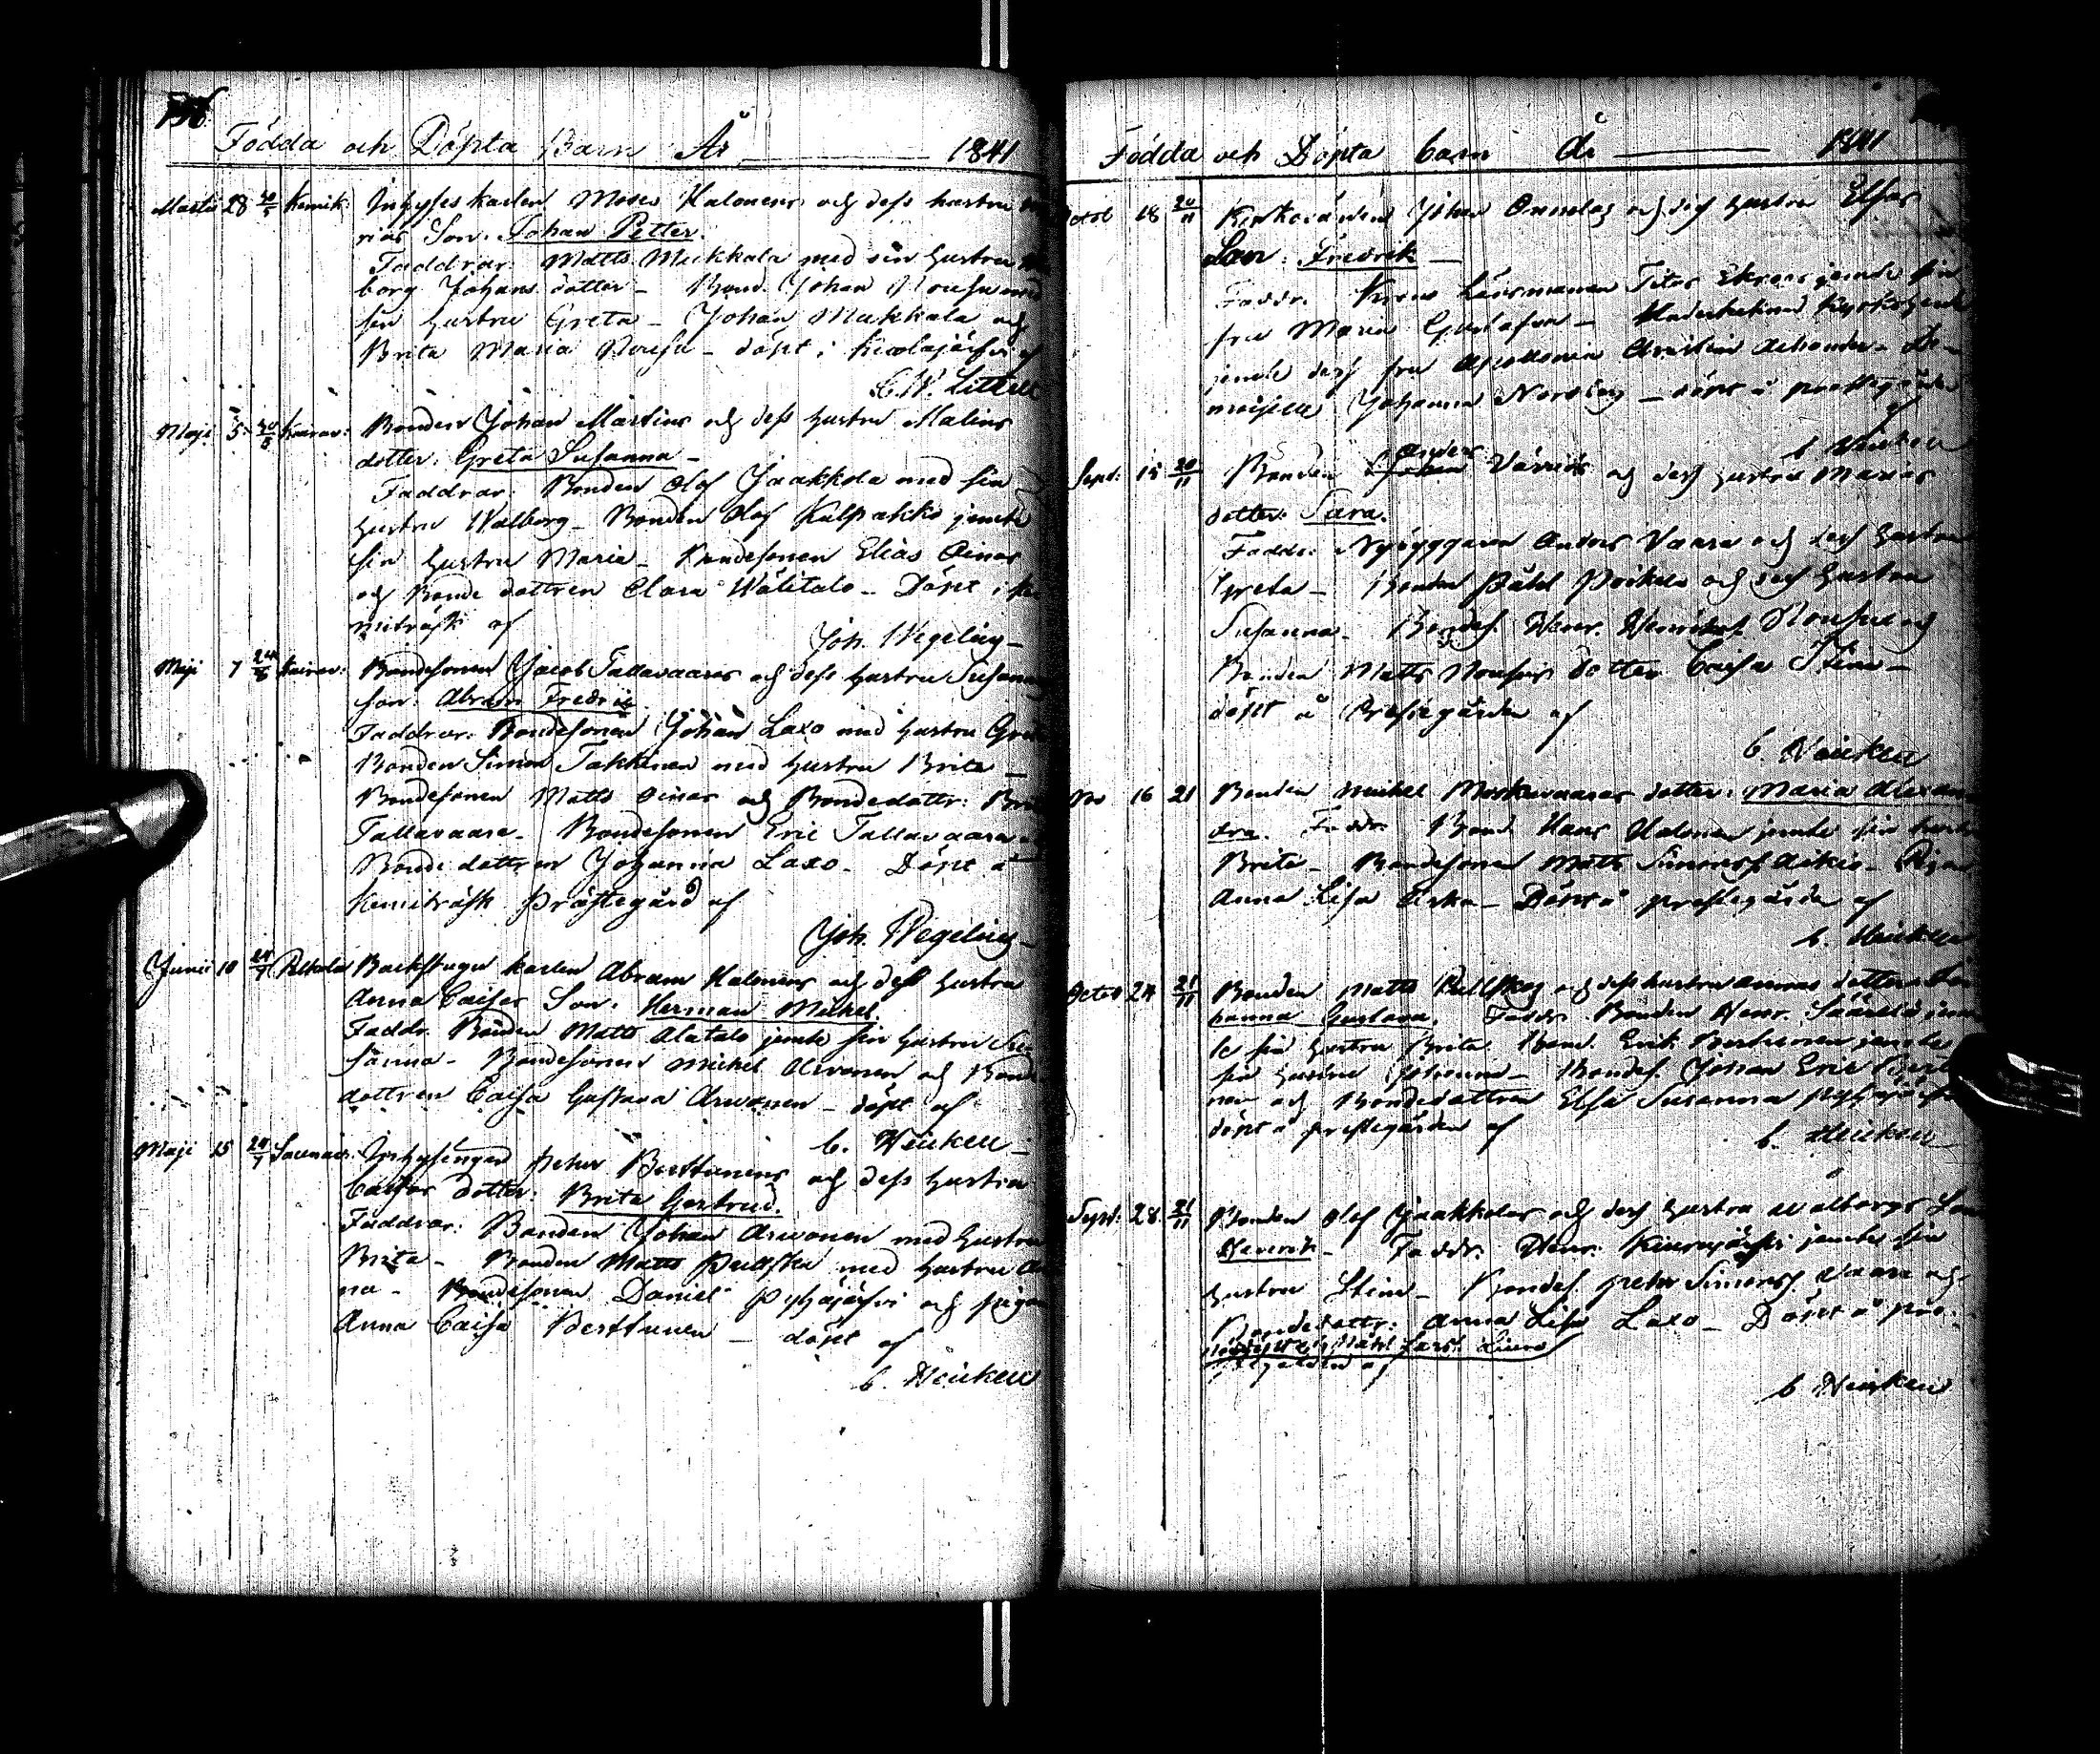 Födda och Döpta Barn År 1841
Martii 28 20/5 Kemik: Inhyses karlen Moses Halonens och dess hustru
rias Son. Johan Petter.
Faddrar: Matts Mukkala med sin hustru
borg Johans dotter – Bond. Johan Nousu med
sin hustru Greta – Johan Mukkala och
Brita Maria Nousu – döpt i Kuolajärfvi af
Maji 5 20/5 Bonden Johan Martins och dess hustru Malins
dotter: Greta Susanna –
Faddrar: Bonden Olof Jaakkola med sin
hustru Walborg – Bonden Olof Kulpakko jemte
sin hustru Maria – Bondesonen Elias Oinas
och Bonde dottren Clara Wälitalo – Döpt i Ke
miträsk af
Joh. Wegelius –
Maji 7 Bondesonen Jacob Tallavaaras och dess hustru Susanna
son: Abram Fredric
Faddrar: Bondesonen Johan Laxo med hustru Gret
Bonden Simon Takkinen med hustru Brita –
Bondesonen Matts Oinas och Bondedottr: Bri
Tallavaara – Bondesonen Eric Tallavaara
Bonde dottren Johanna Laxo – Döpt å
Kemiträsk Prästegård af
Joh. Wegelius –
Junii 10 24/7 Backstugu karlen Abram Halonens och dess hustru
Anna Caisas Son: Herman Michel.
Faddr. Bonden Matts Alatalo jemte sin hustru Su
sanna – Bondesonen Michel Arvonen och Bonde
dottren Caisa Gustava Arvonen – döpt af
C. Heicken –
Maji 15 24/7 Petter Berttunens och dess hustru
Caisas dotter: Brita Gertrud.
Faddrar: Bonden Johan Arvonen med hustru
Brita – Bonden Matts Pullska med hustru An
na – Bondesonen Daniel Pyhäjärfvi och pigan
Anna Caisa Berttunen – döpt af
C. Heicken
Födda och Döpta barn År 1841
Octob 18 20/11 Johan Onnelas och dess hustru Elsas
Son: Fredrik –
Faddr. Krono Länsmannen Titus Ekroos jemte sin
fru Maria Gustafva –
jemte dess fru Apollonia Christina –
moiselle Johanna Nordberg – döpt å prestegården
af
C. Heicken
Sept: 15 20/11 Bonden Anders Värriös och dess hustru Marias
dotter: Sara.
Faddr: Nybyggaren Anders Vaara och dess hustru
Greta – Bonden Påhl Poikela och dess hustru
Susanna – Bondes. Henr. Henriks. Nousu och
Bonden Matts Nousus dotter Caisa Stina –
döpt å Prestegården af
C. Heicken
No 16 21 Bonden Michel Morkavaaras dotter: Maria Alexan
dra. Faddr. Bond. Hans Halonen jemte sin hustru
Brita – Bondesonen Matts Simons. – Pigan
Anna Lisa – Döpt å prestegården af
C. Heicken
Octob 24 21/11 Bonden Matts Pullskas och dess hustru Annas dotter:
hanna Gustava. Faddr. Bonden Henr. Säärelä jem
te sin hustru Brita. Bond. Erik Berttunen jemte
sin hustru Johanna – Bondes. Johan Eric Bert
nen och Bondedottren Elsa Susanna Pyhäjärfvi
döpt å prestegården af
C. Heicken –
Sept: 28 21/11 Bonden Olof Jaakkolas och dess hustru Walborgs Son
Henrik – Faddr: Henr. jemte sin
hustru Stina – Bondes. Petter Simons. Vaara och
Bondedottr: Anna Lisa Laxo – Döpt å pre
stegården af
C. Heicken